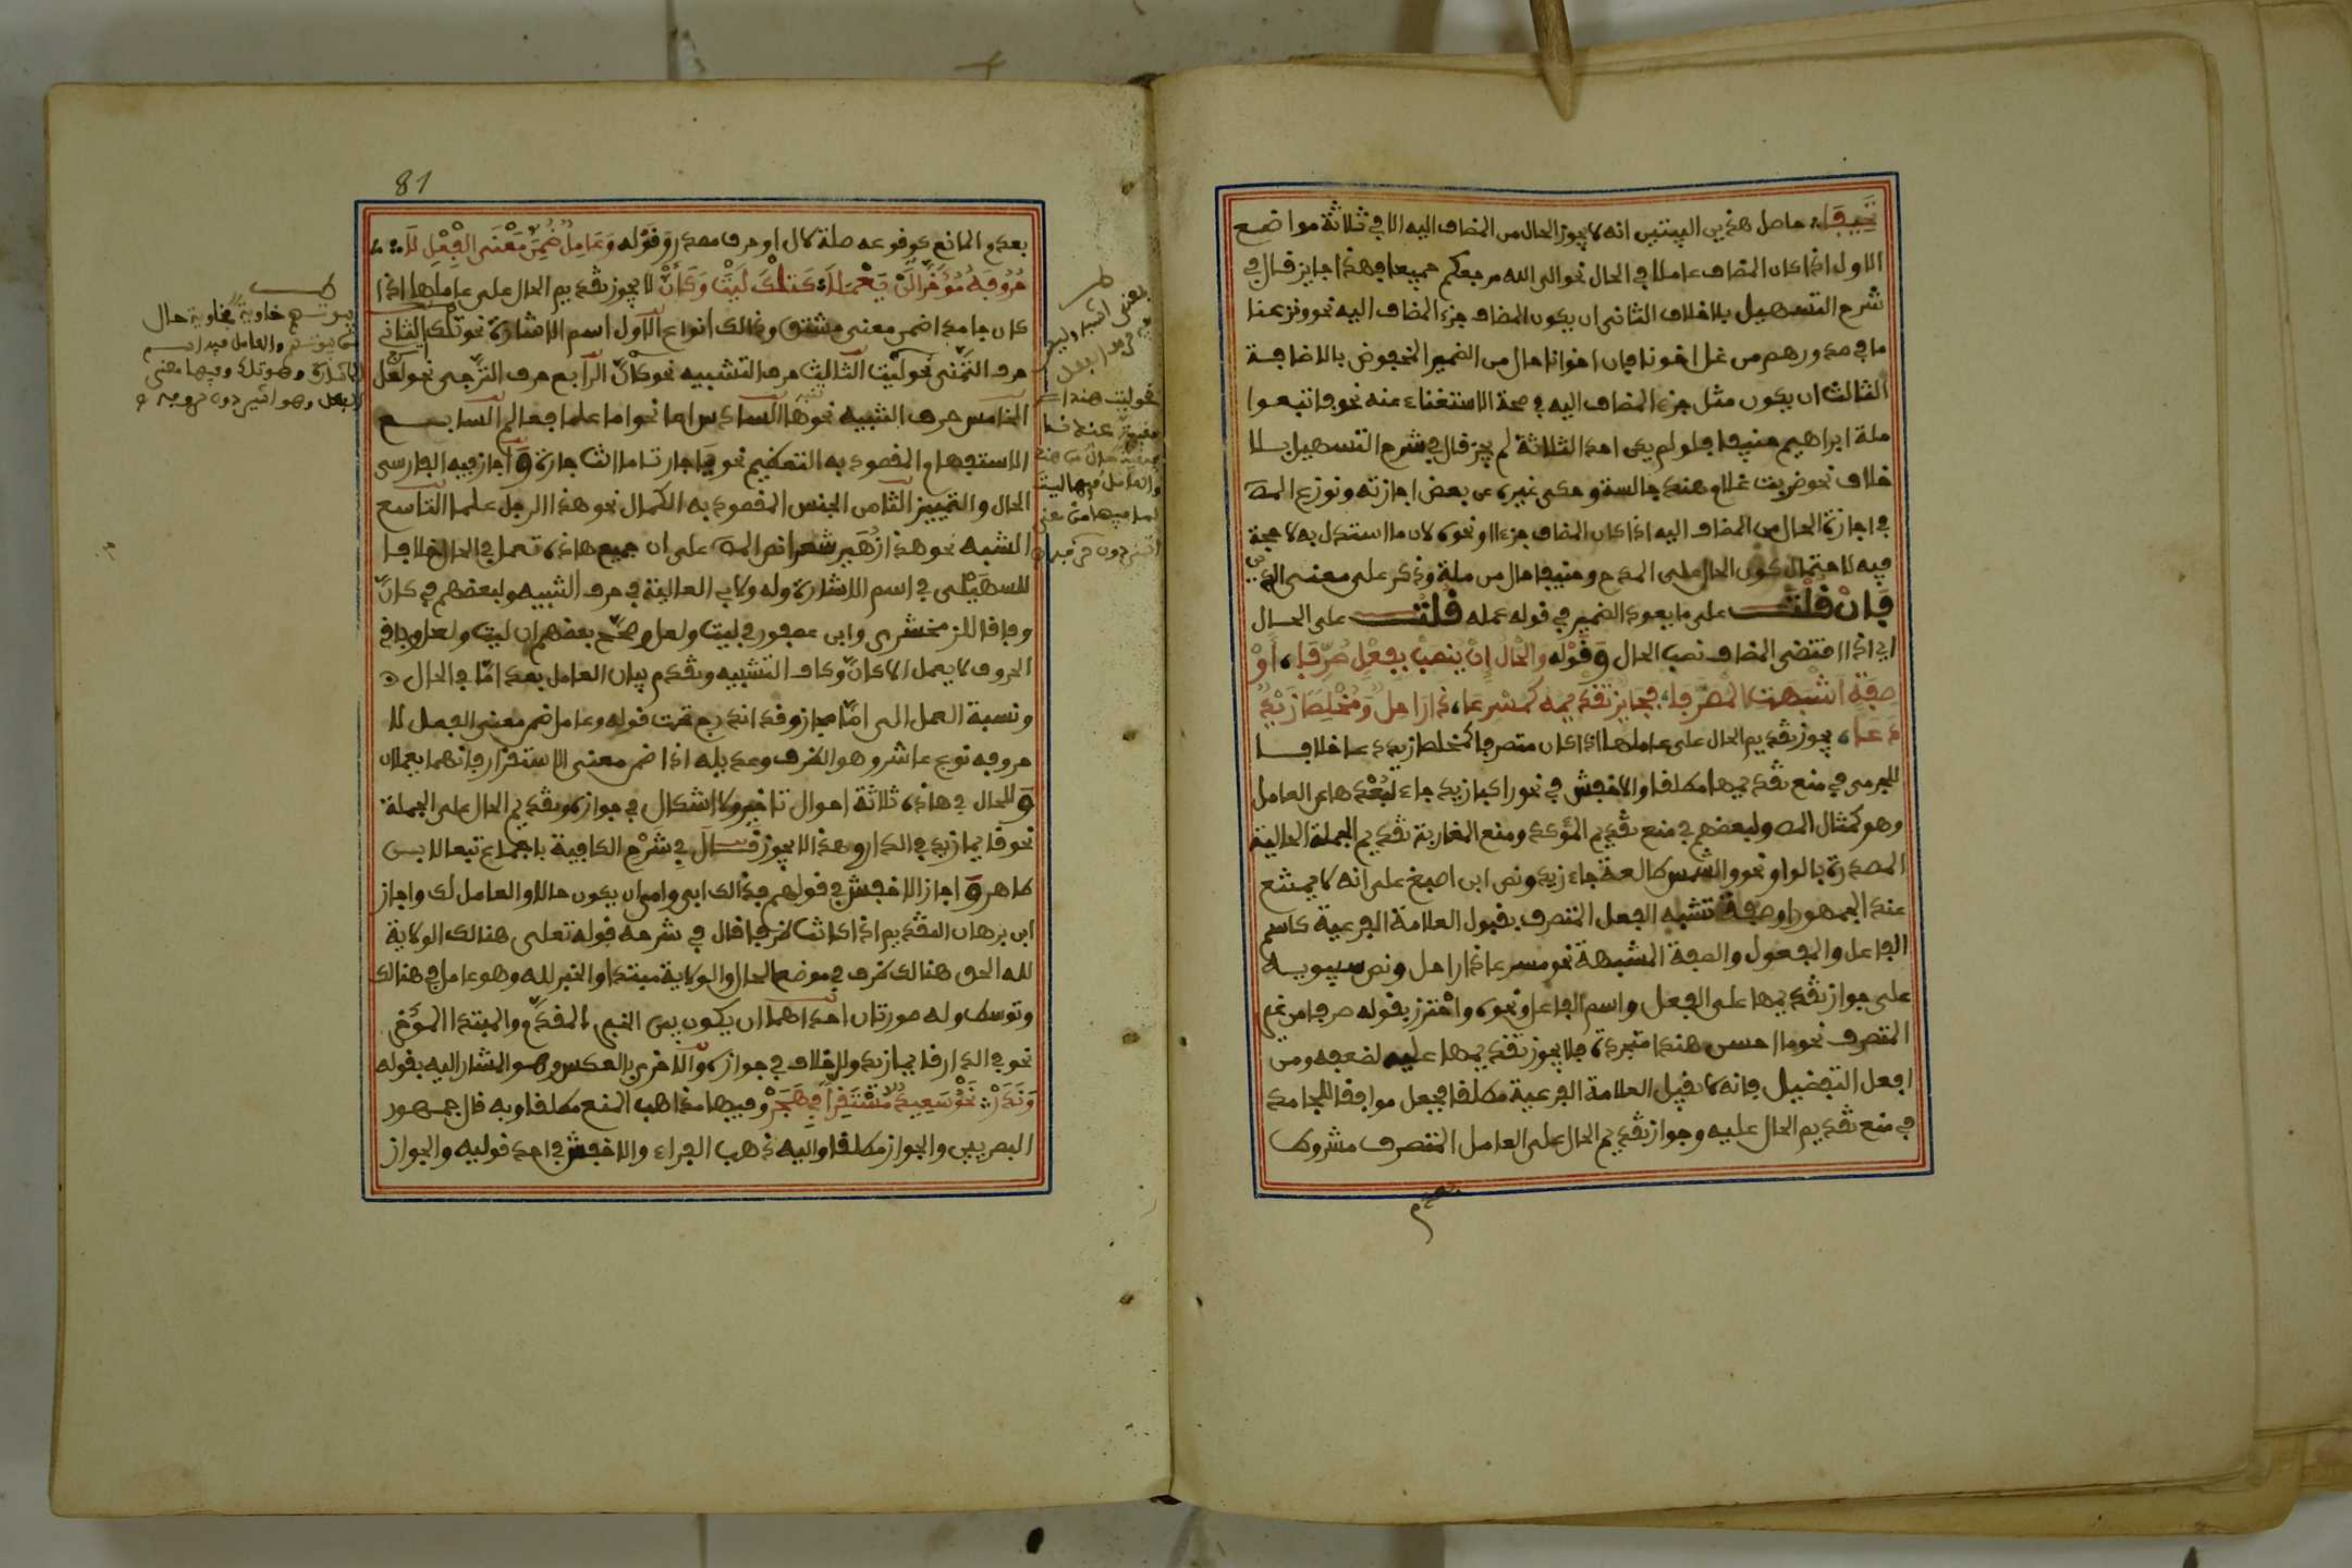 تَحِيفَا؛ حاصل هذين البيتين انه لا يجوز الحال من المضاف اليه الا في ثلاثة مواضع
الاول اذا كان المضاف عاملا في الحال نحو الى الله مرجعكم جميعا فهذا جايز قال في
شرح التسهيل بلا خلاف الثاني ان يكون المضاف جزء المضاف اليه نحو ونزعنا
ما في صدورهم من غل اخونا فان اخوانا حال من الضمير المخفوض بالاضافة
الثالث ان يكون مثل جزء المضاف اليه في صحة الاستغناء عنه نحو فاتبعوا
ملة ابراهيم حنيفا فلو لم يكن احد الثلاثة لم يجز قال في شرح التسهيل بلا
خلاف نحو ضربت غلام هند جالسة وحكى غيره عن بعض اجازته ونوزع المص
في اجازة الحال من المضاف اليه اذا كان المضاف جزءا او نحوه لان ما استدل به لا حجة
فيه لاحتمال كون الحال على المدح وحنيفا حال من ملة وذكر على معنى الدين
فَإِنْ قُلْتَ على ما يعود الضمير في قوله عمله قُلْتُ على الحال
اي اذا اقتضى المضاف نصب الحال وَقَوْله وَالْحَالُ إِنْ يُنْصَبْ بِفِعْلٍ صُرِّفَا، أَوْ
صِفَةٍ اَشْبَهَتِ الْمُصَرَّفَا، فَجَايِزٌ تَقْدِيمُهُ كَمُسْرِعَا، ذَا رَاحِلٌ وَمُخْلِصًا زَيْدٌ
دَعَا، يجوز تقديم الحال على عاملها اذا كان متصرفا كمخلصا زيد دعا خلافا
للجرمي في منع تقديمها مطلقا والاخفش في نحو راكبا زيد جاء لبُعْدها عن العامل
وهو كمثال المص ولبعضهم في منع تقديم المؤكدة ومنع المغاربة تقديم الجملة الحالية
المصدرة بالواو نحو والشمس طالعة جاء زيد ونص ابن اصبغ على انه لا يمتنع
عند الجمهور او صفة تشبه الفعل المتصرف بقبول العلامة الفرعية كاسم
الفاعل والمفعول والصفة المشبهة نحو مسرعا ذا راحل ونص سيبويه
على جواز تقديمها على الفعل واسم الفاعل ونحوه واحْترز بقوله صرفا من غير
المتصرف نحو ما احسن هندا متجردة، فلا يجوز تقديمها عليه لضعفه ومن
افعل التفضيل فانه لا يقبل العلامة الفرعية مطلقا فجعل موافقا للجامد
في منع تقديم الحال عليه وجواز تقديم الحال على العامل المتصرف مشروط
81
بعدم المانع كوقوعه صلة لال او حرف مصدر وَقَوْله وَعَامِلٌ ضُمِّنَ مَعْنَى الْفِعْلِ لَا؛
حُرُوفَهُ مُؤَخَّرًا لَنْ يَعْمَلَا؛ كَتِلْكَ لَيْتَ وَكَأَنَّ لا يجوز تقديم الحال على عاملها اذا
كان جامدا ضمن معنى مشتق وذالك انواع الاول اسم الاشارة نحو تلك الثاني
حرف التمنّي نحو ليت الثالث حرف التشبيه نحو كانّ الرابع حرف الترّجي نحو لعل
الخامس حرف التنبيه نحو ها السادس اما نحو اما علما فعالم السابع
الاستفهام المقصود به التعظيم نحو يا جارتا ما انت جارة وَاجاز فيه الفارسي
الحال والتمييز الثامن الجنس المقصود به الكمال نحو هذا الرجل علما التاسع
الشبه نحو هذا زُهَير شعرا نص المص على ان جميع هاذه تعمل في الحال خلافا
للسهَيْلي في اسم الاشارة وله ولابي العالية في حرف التنبيه ولبعضهم في كانّ
وفاقا للزمخشري وابن عصفور في ليت ولعل وصحّح بعضهم ان ليت ولعل وباقي
الحروف لا يعمل الا كانّ وكاف التشبيه وتقدم بيان العامل بعد امّا في الحال
ونسبة العمل الى امّا مجاز وقد اندرج تحت قوله وعامل ضمن معنى الفعل لا
حروفه نوع عاشر وهو الظرف وعديله اذا ضمن معنى الاستقرار فانهما يعملان
وَللحال في هاذه ثلاثة احوال تاخير ولا اشكال في جوازه وتقديم الحال على الجملة
نحو قايما زيد في الدار وهذا لا يجوز قَالَ في شَرْح الكافية باجماع تبعا لابن
طاهر وَاجاز الاخفش في قولهم فدالك ابي وامي ان يكون حالا والعامل لك واجاز
ابن برهان التقديم اذا كانت ظرفا قال في شرحه قوله تعلى هنالك الولاية
لله الحق هنالك ظرف في موضع الحال والولاية مبتدا والخبر لله وهو عامل في هنالك
وتوسط وله صورتان احداهما ان يكون بين الخبر المقدّم والمبتدا المؤخر
نحو في الدار قايما زيد ولا خلاف في جوازه والاخرى بالعكس وهو المشار اليه بقوله
وَنَدَرْ؛ نَحْوُ سَعِيدٌ مُسْتَقِرًّا فِي هَجَرْ وفيها مذاهب المنع مطلقا وبه قال جمهور
البصريين والجواز مطلقا واليه ذهب الفراء والاخفش في احد قوليه والجواز